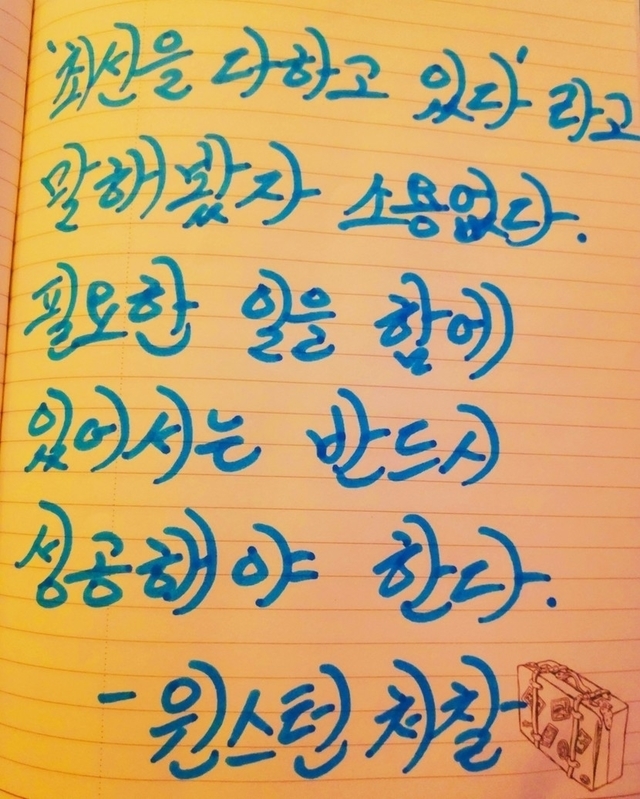 '최선을 다하고 있다' 라고
말해봤자 소용없다.
필요한 일을 함에
있어서는 반드시
성공해야 한다.
- 윈스턴 처칠 -